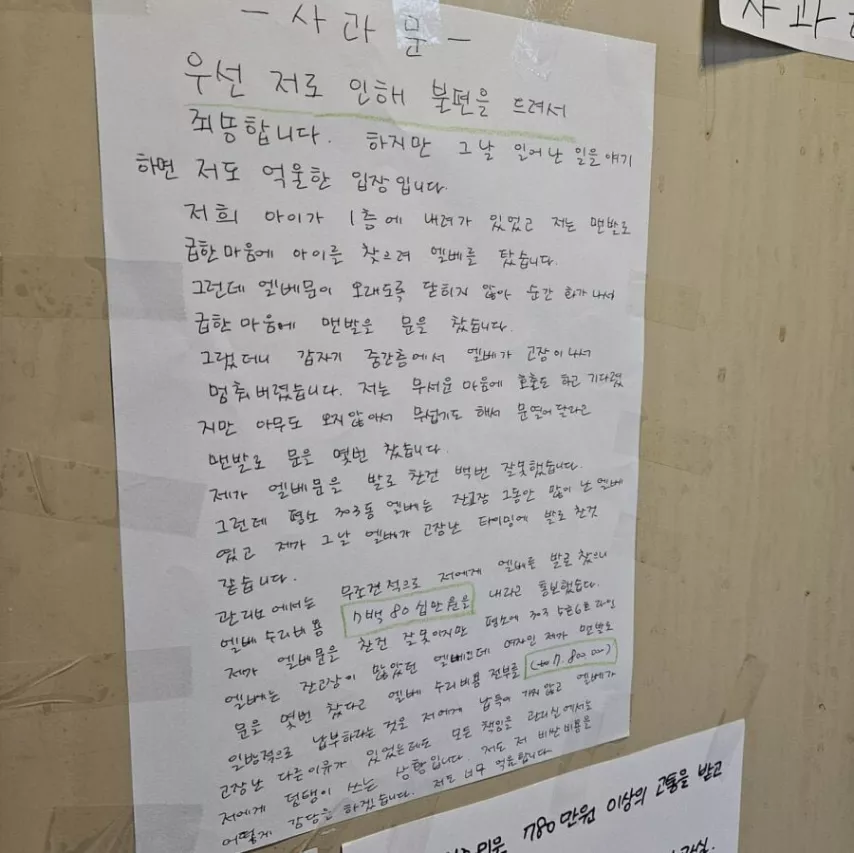 - 사 과 문 -
우선 저로 인해 불편을 드려서
죄송합니다. 하지만 그날 일어난 일을 얘기
하면 저도 억울한 입장입니다.
저희 아이가 1층에 내려가 있었고 저는 맨발로
급한마음에 아이를 찾으려 엘베를 탔습니다.
그런데 엘베문이 오래도록 닫히지 않아 순간 화가나서
급한마음에 맨발을 문을 찼습니다.
그랬더니 갑자기 중간층에서 엘베가 고장이나서
멈춰버렸습니다. 저는 무서운 마음에 호출도 하고 기다렸
지만 아무도 오지않아서 무섭기도 해서 문열어달라고
맨발로 문을 몇번 찼습니다.
제가 엘베문을 발로 찬건 백번 잘못했습니다.
그런데 평소 303동 엘베는 잔고장 그동안 많이 난 엘베
였고 제가 그날 엘베가 고장난 타이밍에 발로 찬것
같습니다.
관리소에서는 무조건적으로 저에게 엘베를 발로 찼으니
엘베 수리비용 7백80십만원을 내라고 통보했습니다.
제가 엘베문을 찬건 잘못이지만 평소에 303 5호6호라인
엘베는 잔고장이 많았던 엘베인데 여자인 제가 맨발로
문을 몇번 찼다고 엘베 수리비용 전부를 7.800.000)
일방적으로 납부하라는 것은 저에게 납득이 가지 않고 엘베가
고장난 다른이유가 있었는데도 모든 책임을 관리실에서는
저에게 덤탱이 쓰는 상황입니다. 저도 저 비싼비용을
어떻게 감당을 하겠습니다. 저도 너무 억울합니다
사 과
780만원 이상의 고통을 받고